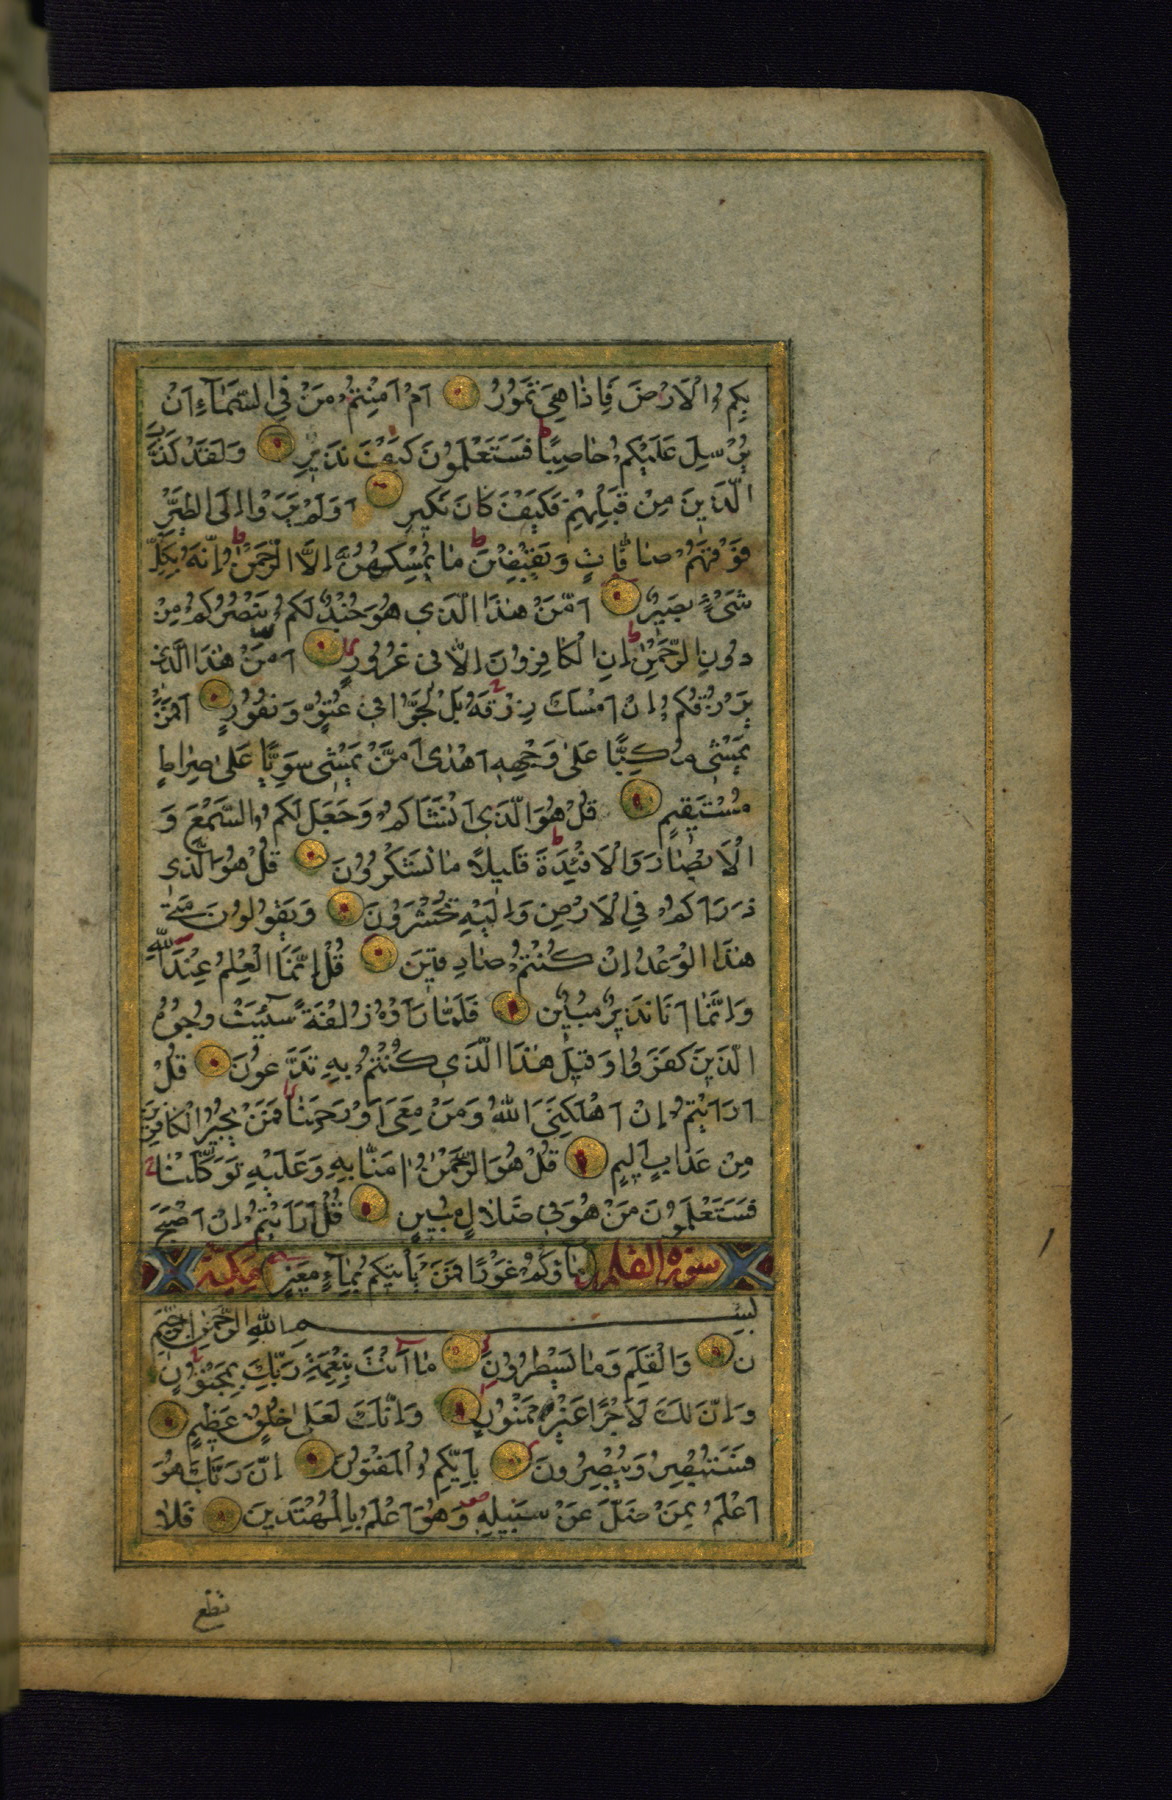 بِكُمُ الْاَرْضَ فَاِذَا هِىَ تَمُورُ اَمْ اَمِنْتُمْ مَنْ فِى السَّمَآءِ اَنْ
يُرْسِلَ عَلَيْكُمْ حَاصِبًا فَسَتَعْلَمُونَ كَيْفَ نَذِيرِ وَلَقَدْ كَذَّبَ
الَّذِينَ مِنْ قَبْلِهِمْ فَكَيْفَ كَانَ نَكِيرِ اَوَلَمْ يَرَوْا اِلَى الطَّيْرِ
فَوْقَهُمْ صَافَّاتٍ وَيَقْبِضْنَ ط مَا يُمْسِكُهُنَّ اِلَّا الرَّحْمٰنُ ط اِنَّهُ بِكُلِّ
شَىْءٍ بَصِيرٌ اَمَّنْ هٰذَا الَّذِى هُوَ جُنْدٌ لَكُمْ يَنْصُرُكُمْ مِنْ
دُونِ الرَّحْمٰنِ ط اِنِ الْكَافِرُونَ اِلَّا فِى غُرُورٍ اَمَّنْ هٰذَا الَّذِى
يَرْزُقُكُمْ اِنْ اَمْسَكَ رِزْقَهُ بَلْ لَجُّوا فِى عُتُوٍّ وَنُفُورٍ اَفَمَنْ
يَمْشِى مُكِبًّا عَلٰى وَجْهِهِ اَهْدٰى اَمَّنْ يَمْشِى سَوِيًّا عَلٰى صِرَاطٍ
مُسْتَقِيمٍ قُلْ هُوَ الَّذِى اَنْشَاَكُمْ وَجَعَلَ لَكُمُ السَّمْعَ وَ
الْاَبْصَارَ وَالْاَفْئِدَةَ ط قَلِيلًا مَا تَشْكُرُونَ قُلْ هُوَ الَّذِى
ذَرَاَكُمْ فِى الْاَرْضِ وَاِلَيْهِ تُحْشَرُونَ وَيَقُولُونَ مَتٰى
هٰذَا الْوَعْدُ اِنْ كُنْتُمْ صَادِقِينَ قُلْ اِنَّمَا الْعِلْمُ عِنْدَ اللّٰهِ
وَاِنَّمَا اَنَا نَذِيرٌ مُبِينٌ فَلَمَّا رَاَوْهُ زُلْفَةً سِيئَتْ وُجُوهُ
الَّذِينَ كَفَرُوا وَقِيلَ هٰذَا الَّذِى كُنْتُمْ بِهِ تَدَّعُونَ قُلْ
اَرَاَيْتُمْ اِنْ اَهْلَكَنِىَ اللّٰهُ وَمَنْ مَعِىَ اَوْ رَحِمَنَا فَمَنْ يُجِيرُ الْكَافِرِينَ
مِنْ عَذَابٍ اَلِيمٍ قُلْ هُوَ الرَّحْمٰنُ اٰمَنَّا بِهِ وَعَلَيْهِ تَوَكَّلْنَا
فَسَتَعْلَمُونَ مَنْ هُوَ فِى ضَلَالٍ مُبِينٍ قُلْ اَرَاَيْتُمْ اِنْ اَصْبَحَ
سورة القلم مَاؤُكُمْ غَوْرًا فَمَنْ يَأْتِيكُمْ بِمَآءٍ مَعِينٍ مكية
بِسْمِ اللّٰهِ الرَّحْمٰنِ الرَّحِيمِ
ن وَالْقَلَمِ وَمَا يَسْطُرُونَ مَا اَنْتَ بِنِعْمَةِ رَبِّكَ بِمَجْنُونٍ
وَاِنَّ لَكَ لَاَجْرًا غَيْرَ مَمْنُونٍ وَاِنَّكَ لَعَلٰى خُلُقٍ عَظِيمٍ
فَسَتُبْصِرُ وَيُبْصِرُونَ بِاَيِّكُمُ الْمَفْتُونُ اِنَّ رَبَّكَ هُوَ
اَعْلَمُ بِمَنْ ضَلَّ عَنْ سَبِيلِهِ وَهُوَ اَعْلَمُ بِالْمُهْتَدِينَ فَلَا
تطع